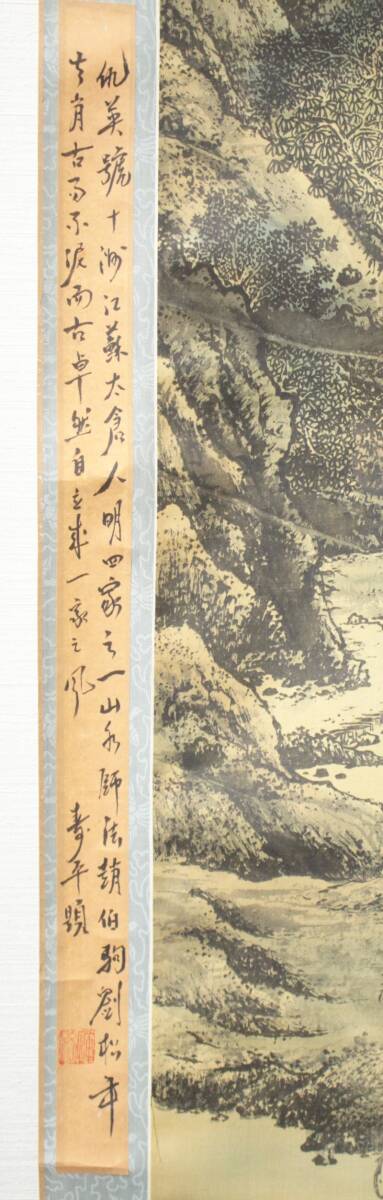 仇英號十洲江蘇太倉人明四家之一山水師法趙伯駒劉松年
古而不泥而古卓然自立成一家之風
壽平題